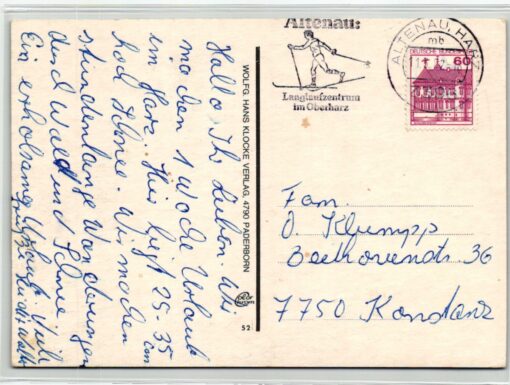 Hallo, Ihr Lieben. Wir
machen 1 Woche Urlaub
im Harz. Hier liegt 25-35 cm
hoch Schnee. Wir machen
stundenlange Wanderungen
durch Wald und Schnee.
Ein erholsamer Urlaub. Viele
Grüße
WOLFG. HANS KLOCKE VERLAG, 4790 PADERBORN
52
Altenau:
Langlaufzentrum
im Oberharz
ALTENAU, HARZ
mb
DEUTSCHE BUNDESPOST
60
Fam.
O. Klumpp
Beethovenstr. 36
7750 Konstanz